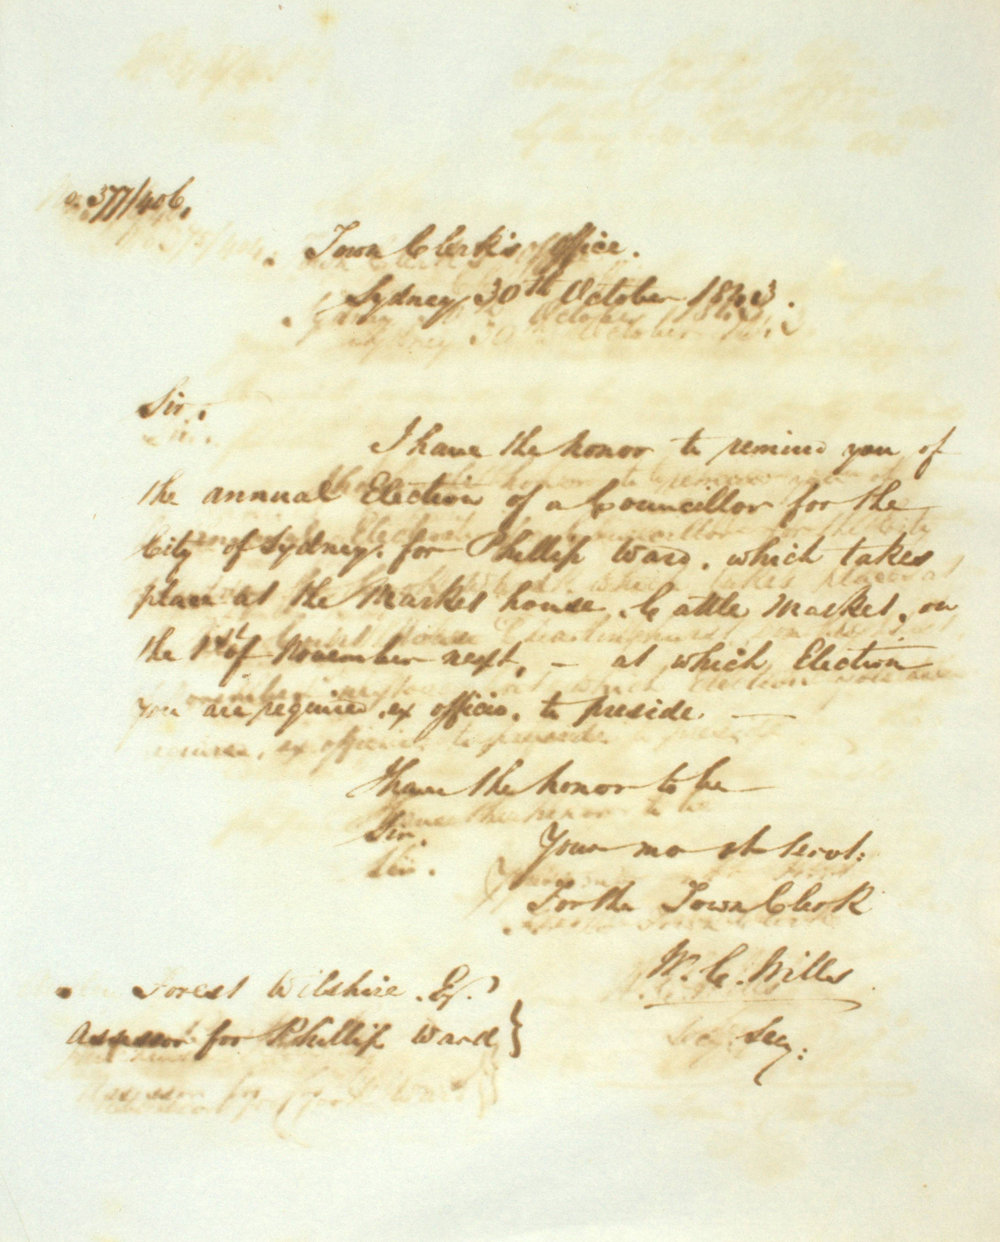 o. 377/406.
Town Clerk's Office.
Sydney 30th October 1843.
Sir.
I have the honor to remind you of
the annual Election of a Councillor for the
City of Sydney, for Phillip Ward, which takes
place at the Market house, Cattle Market, on
the 1st of November next, — at which Election
you are required, ex officio, to preside. —
I have the honor to be
Sir.
Your mo ob Servt:
For the Town Clerk
W. C. Wills
Secy:
Forest Wilshire Esqr.
Assessor for Phillip Ward }